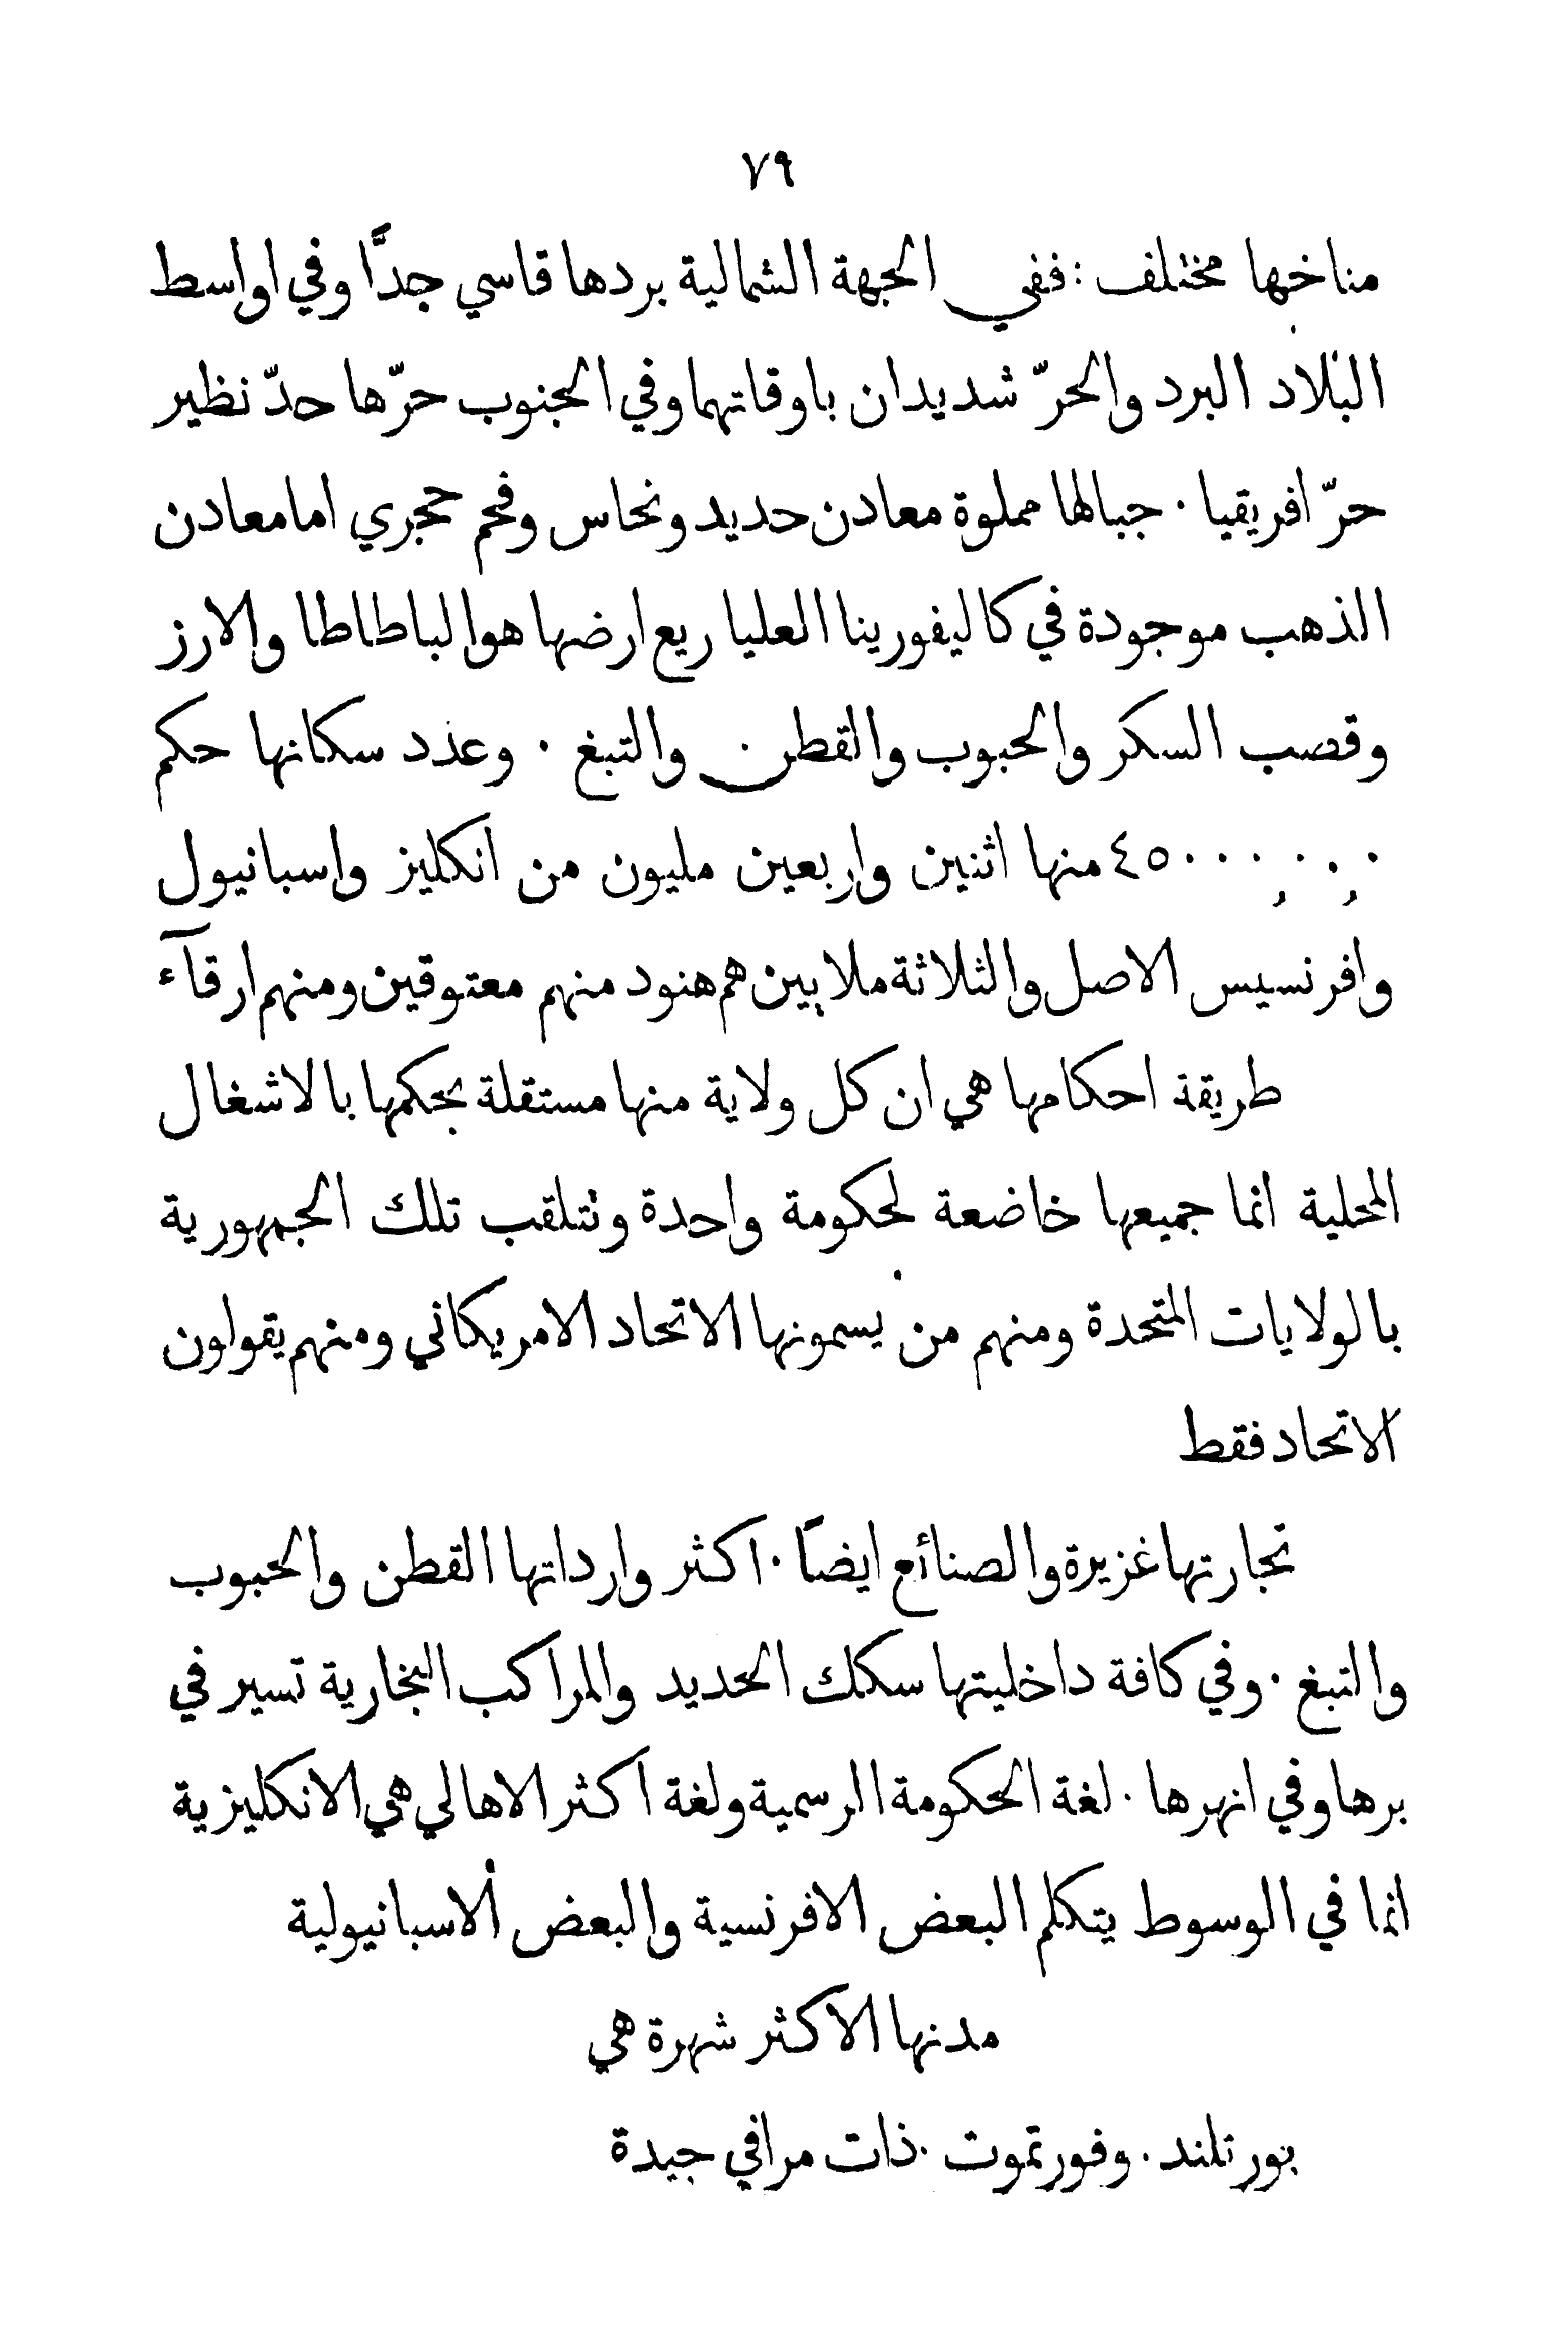 ٧٩
مناخها مختلف : ففي الجهة الشمالية بردها قاسي جدًّا وفي اواسط
البلاد البرد والحرّ شديدان باوقاتهما وفي الجنوب حرّها حدّ نظير
حرّ افريقيا ٠ جبالها مملوة معادن حديد ونحاس وفحم حجري اما معادن
الذهب موجودة في كاليفورينا العليا ريع ارضها هو الباطاطا والارز
وقصب السكر والحبوب والقطن والتبغ ٠ وعدد سكانها حكم
٤٥٠٠٠,٠٠,٠ منها اثنين واربعين مليون من انكليز واسبانيول
وافرنسيس الاصل والثلاثة ملايين هم هنود منهم معتوقين ومنهم ارقآء
طريقة احكامها هي ان كل ولاية منها مستقلة بحكمها بالاشغال
المحلية انما جميعها خاضعة لحكومة واحدة وتتلقب تلك الجمهورية
بالولايات المتحدة ومنهم من يسمونها الاتحاد الامريكاني ومنهم يقولون
الاتحاد فقط
تجارتها غزيرة والصنائع ايضاً ٠ اكثر وارداتها القطن والحبوب
والتبغ ٠ وفي كافة داخليتها سكك الحديد والمراكب البخارية تسير في
برها وفي انهرها ٠ لغة الحكومة الرسمية ولغة اكثر الاهالي هي الانكليزية
انما في الوسوط يتكلم البعض الافرنسية والبعض الاسبانيولية
مدنها الاكثر شهرة هي
بورتلند ٠ وفورتموت ٠ ذات مرافي جيدة